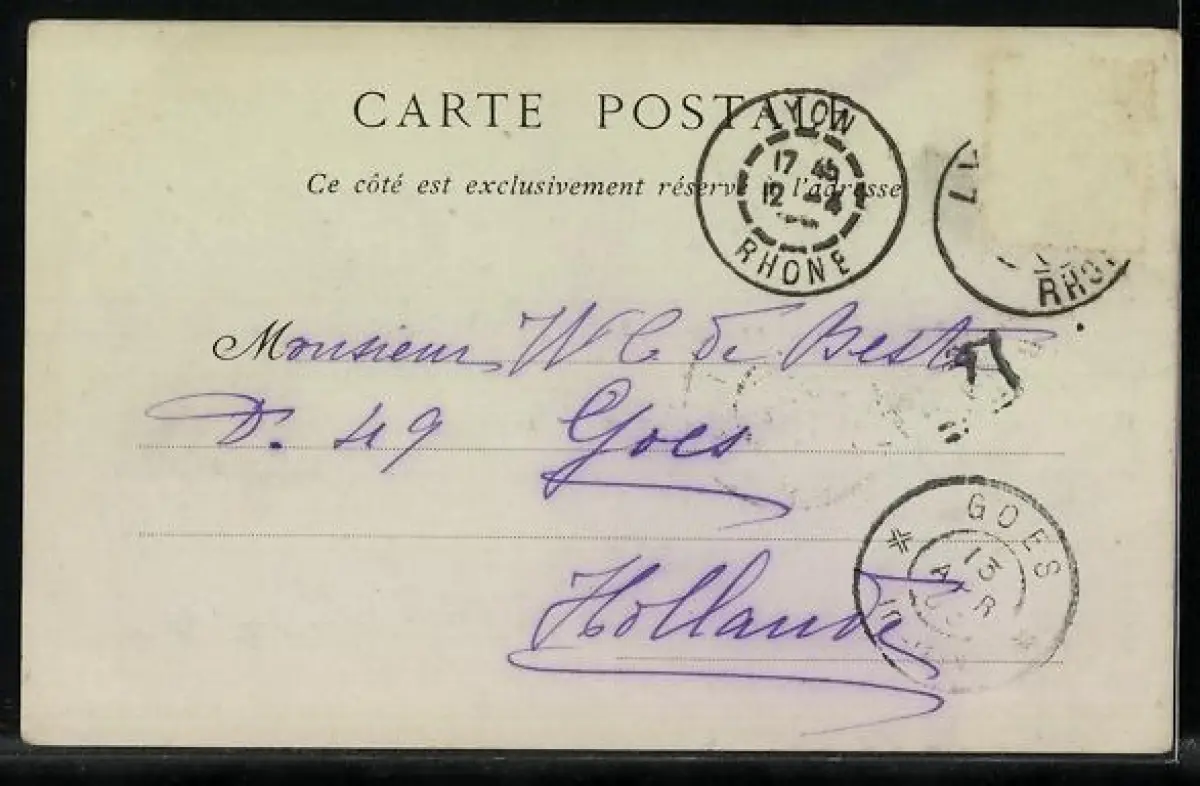 CARTE POSTALE
Ce côté est exclusivement réservé à l'adresse
LYON
17 45
12 -4
RHONE
17
RHO
Monsieur W C de Beste
D. 49 Goes
Hollande
GOES
13
APR